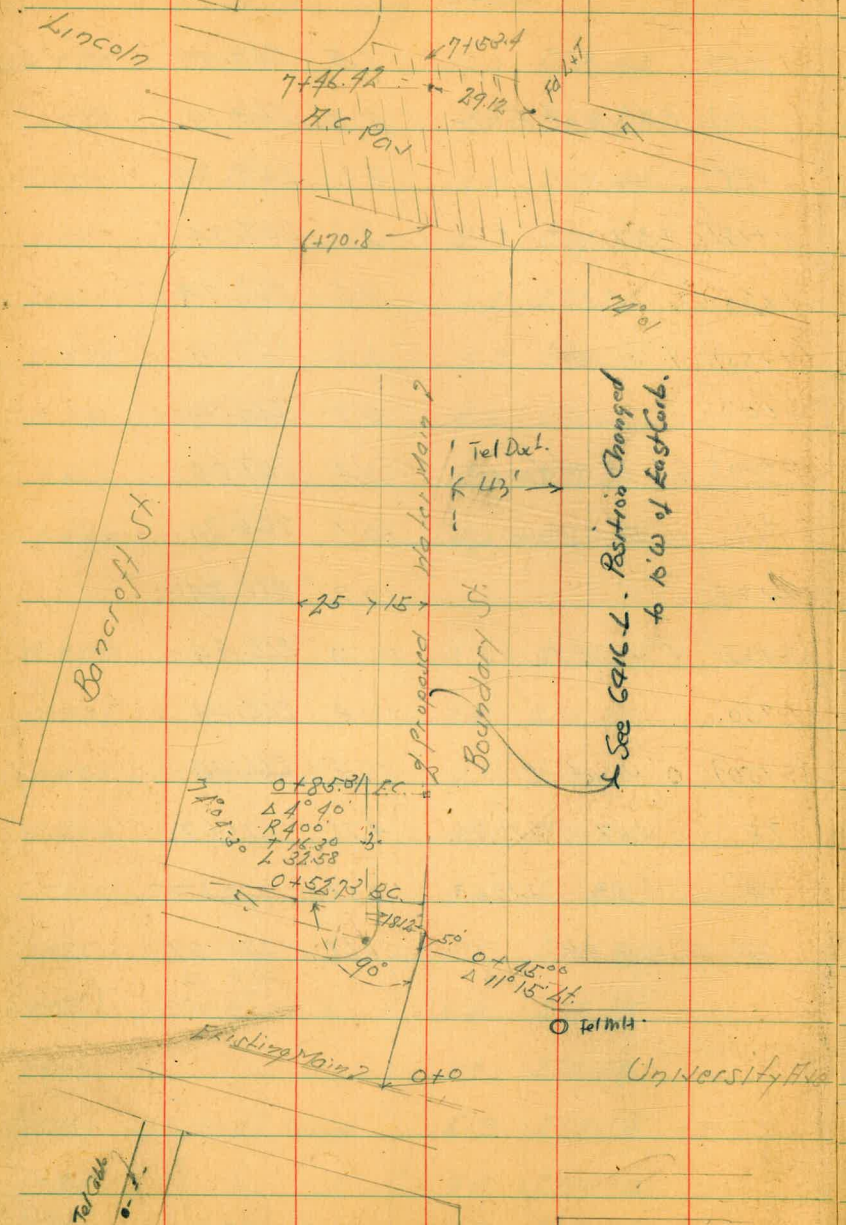 Lincoln
7+53.4
7+46.42
29.12
Fd. L&T
A.C. Pav
7
6+70.8
74° 01'
Tel Duct.
43'
Bancroft St.
25 15
℄ Proposed Water Main ?
Boundary St.
See 6416-L - Position Changed
to 10' W of East Curb.
0+85.31 E.C.
Δ 4° 40'
R 400
T 16.30
L 32.58
0+52.73 B.C.
7
18.12
5.0
90°
0+45.00
Δ 11° 15' Lt.
Tel M.H.
Existing Main ?
0+0
University Ave
Tel Cable